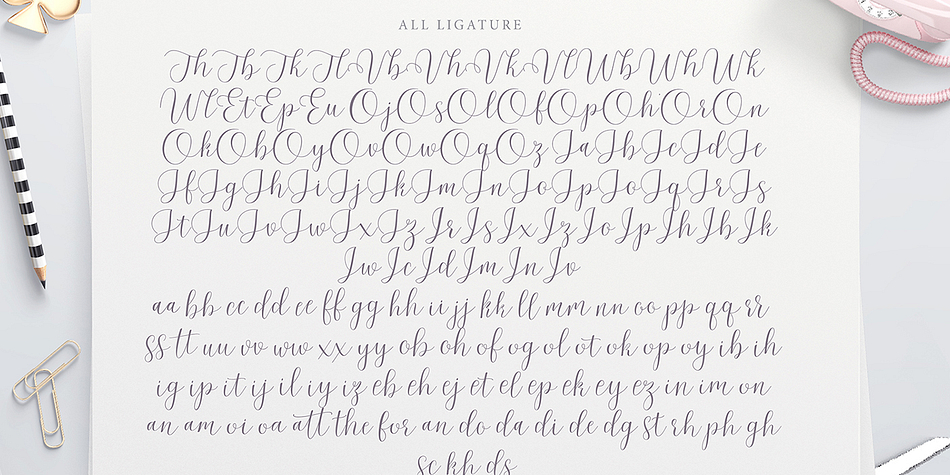 ALL LIGATURE
Th Tb Tk Tl Vb Vh Vk Vl Wb Wh Wk
Wl Et Ep Eu Oj Os Ol Of Op Oh Or On
Ok Ob Oy Ov Ow Oq Oz Ia Ib Ic Id Ie
If Ig Ih Ii Ij Ik Im In Io Ip Io Iq Ir Is
It Iu Iv Iw Ix Iz Jr Js Jx Jz Jo Jp Jh Jb Jk
Jw Jc Jd Jm Jn Jv
aa bb cc dd ee ff gg hh ii jj kk ll mm nn oo pp qq rr
ss tt uu vv ww xx yy ob oh of og ol ot ok op oy ib ih
ig ip it ij il iy iz eb eh ej et el ep ek ey ez in im on
an am oi oa att the for an do da di de dg st rh ph gh
sc kh ds